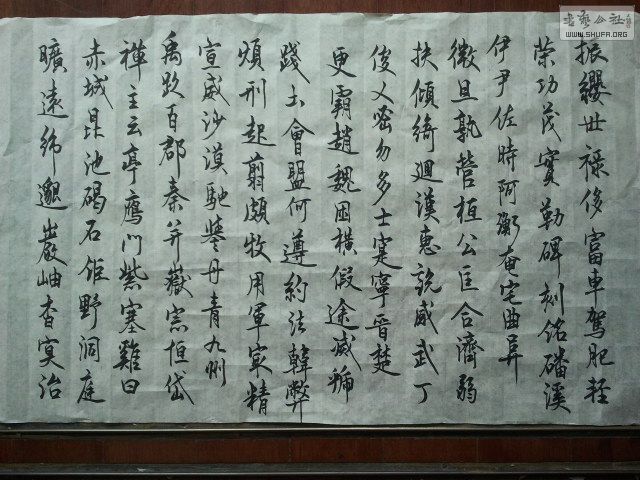 书艺公社
WWW.SHUFA.ORG
振纓世祿侈富車駕肥輕
策功茂實勒碑刻銘磻溪
伊尹佐時阿衡奄宅曲阜
微旦孰營桓公匡合濟弱
扶傾綺迴漢惠説感武丁
俊乂密勿多士寔寧晉楚
更霸趙魏困橫假途滅虢
踐土會盟何遵約法韓弊
煩刑起翦頗牧用軍冣精
宣威沙漠馳譽丹青九州
禹跡百郡秦并嶽宗恒岱
禪主云亭鴈門紫塞雞田
赤城昆池碣石鉅野洞庭
曠遠綿邈巖岫杳冥治